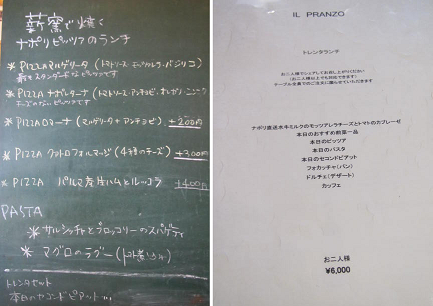 薪窯で焼く
ナポリピッツァのランチ
* PIZZA マルゲリータ (トマトソース・モッツァレラ・バジリコ)
最もスタンダードなピッツァです
* PIZZA ナポレターナ (トマトソース・アンチョビ・オレガノ・ニンニク)
チーズのないピッツァです
* PIZZA ロマーナ (マルゲリータ + アンチョビ) +200円
* PIZZA クアトロフォルマッジ (4種のチーズ) +300円
* PIZZA パルマ産生ハムとルッコラ +400円
PASTA
* サルシッチャとブロッコリーのスパゲティ
* マグロのラグー (トマト煮込み)
トレンタセット
本日のセコンドピアット...
IL PRANZO
トレンタランチ
お二人様でシェアしてお召し上がりください
(お二人様以上でも対応できます)
テーブル全員でのご注文に限らせていただきます
ナポリ直送水牛ミルクのモッツアレラチーズとトマトのカプレーゼ
本日のおすすめ前菜一品
本日のピッツァ
本日のパスタ
本日のセコンドピアット
フォカッチャ(パン)
ドルチェ(デザート)
カッフェ
お二人様
¥6,000